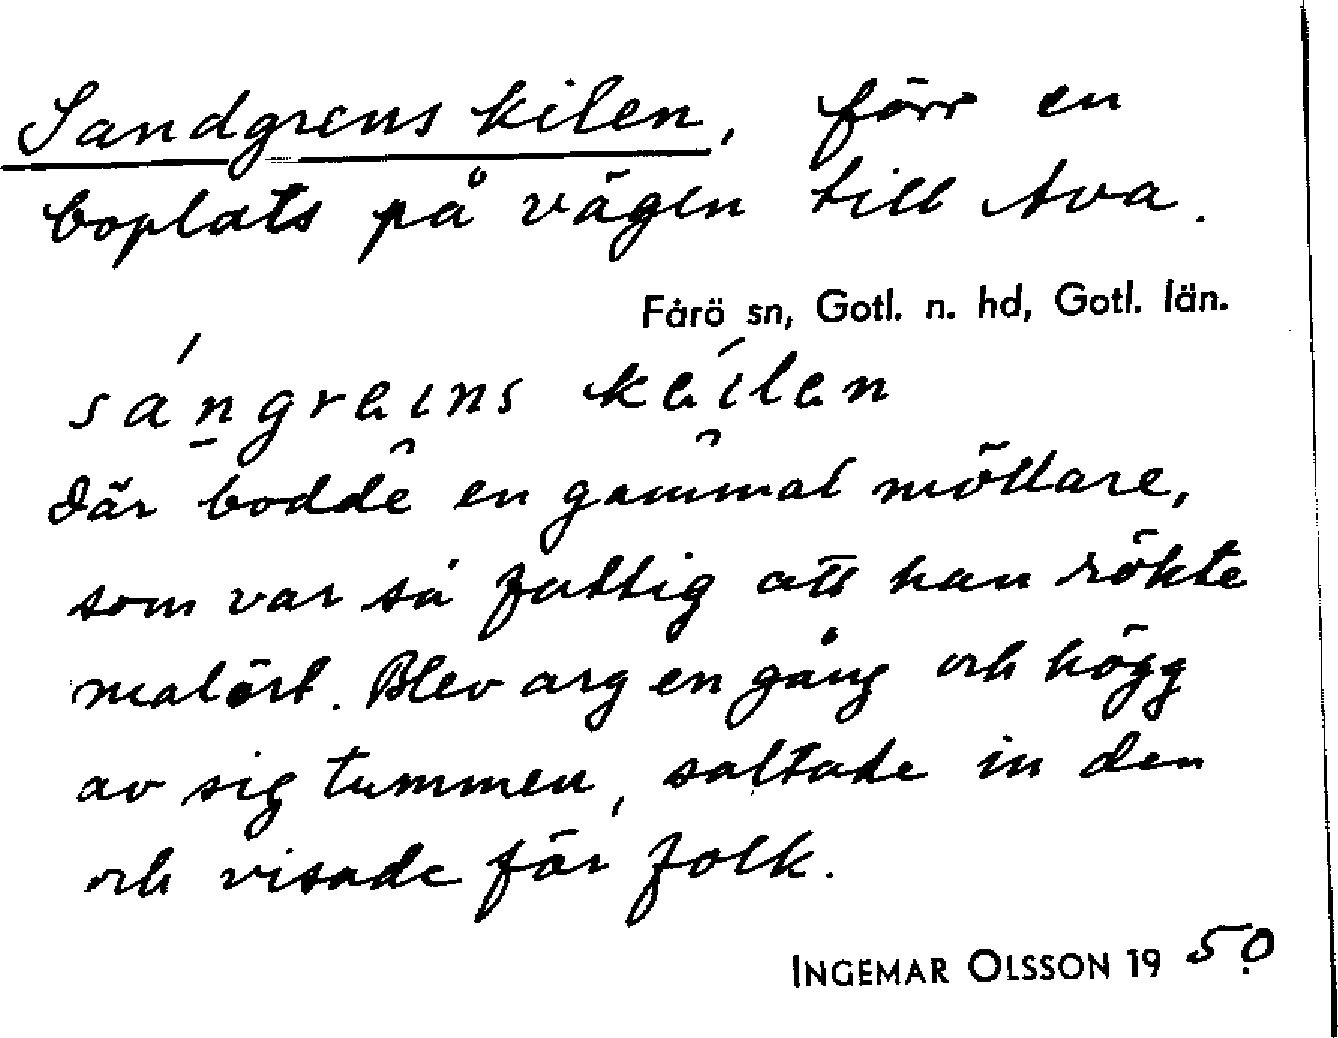 Sandgrens kilen, förr en
boplats på vägen till Ava.
Fårö sn, Gotl. n. hd, Gotl. län.
sangreins keilen
Där bodde en gammal möllare,
som var så fattig att han rökte
malört. Blev arg en gång och högg
av sig tummen, saltade in den
och visade för folk.
INGEMAR OLSSON 1950